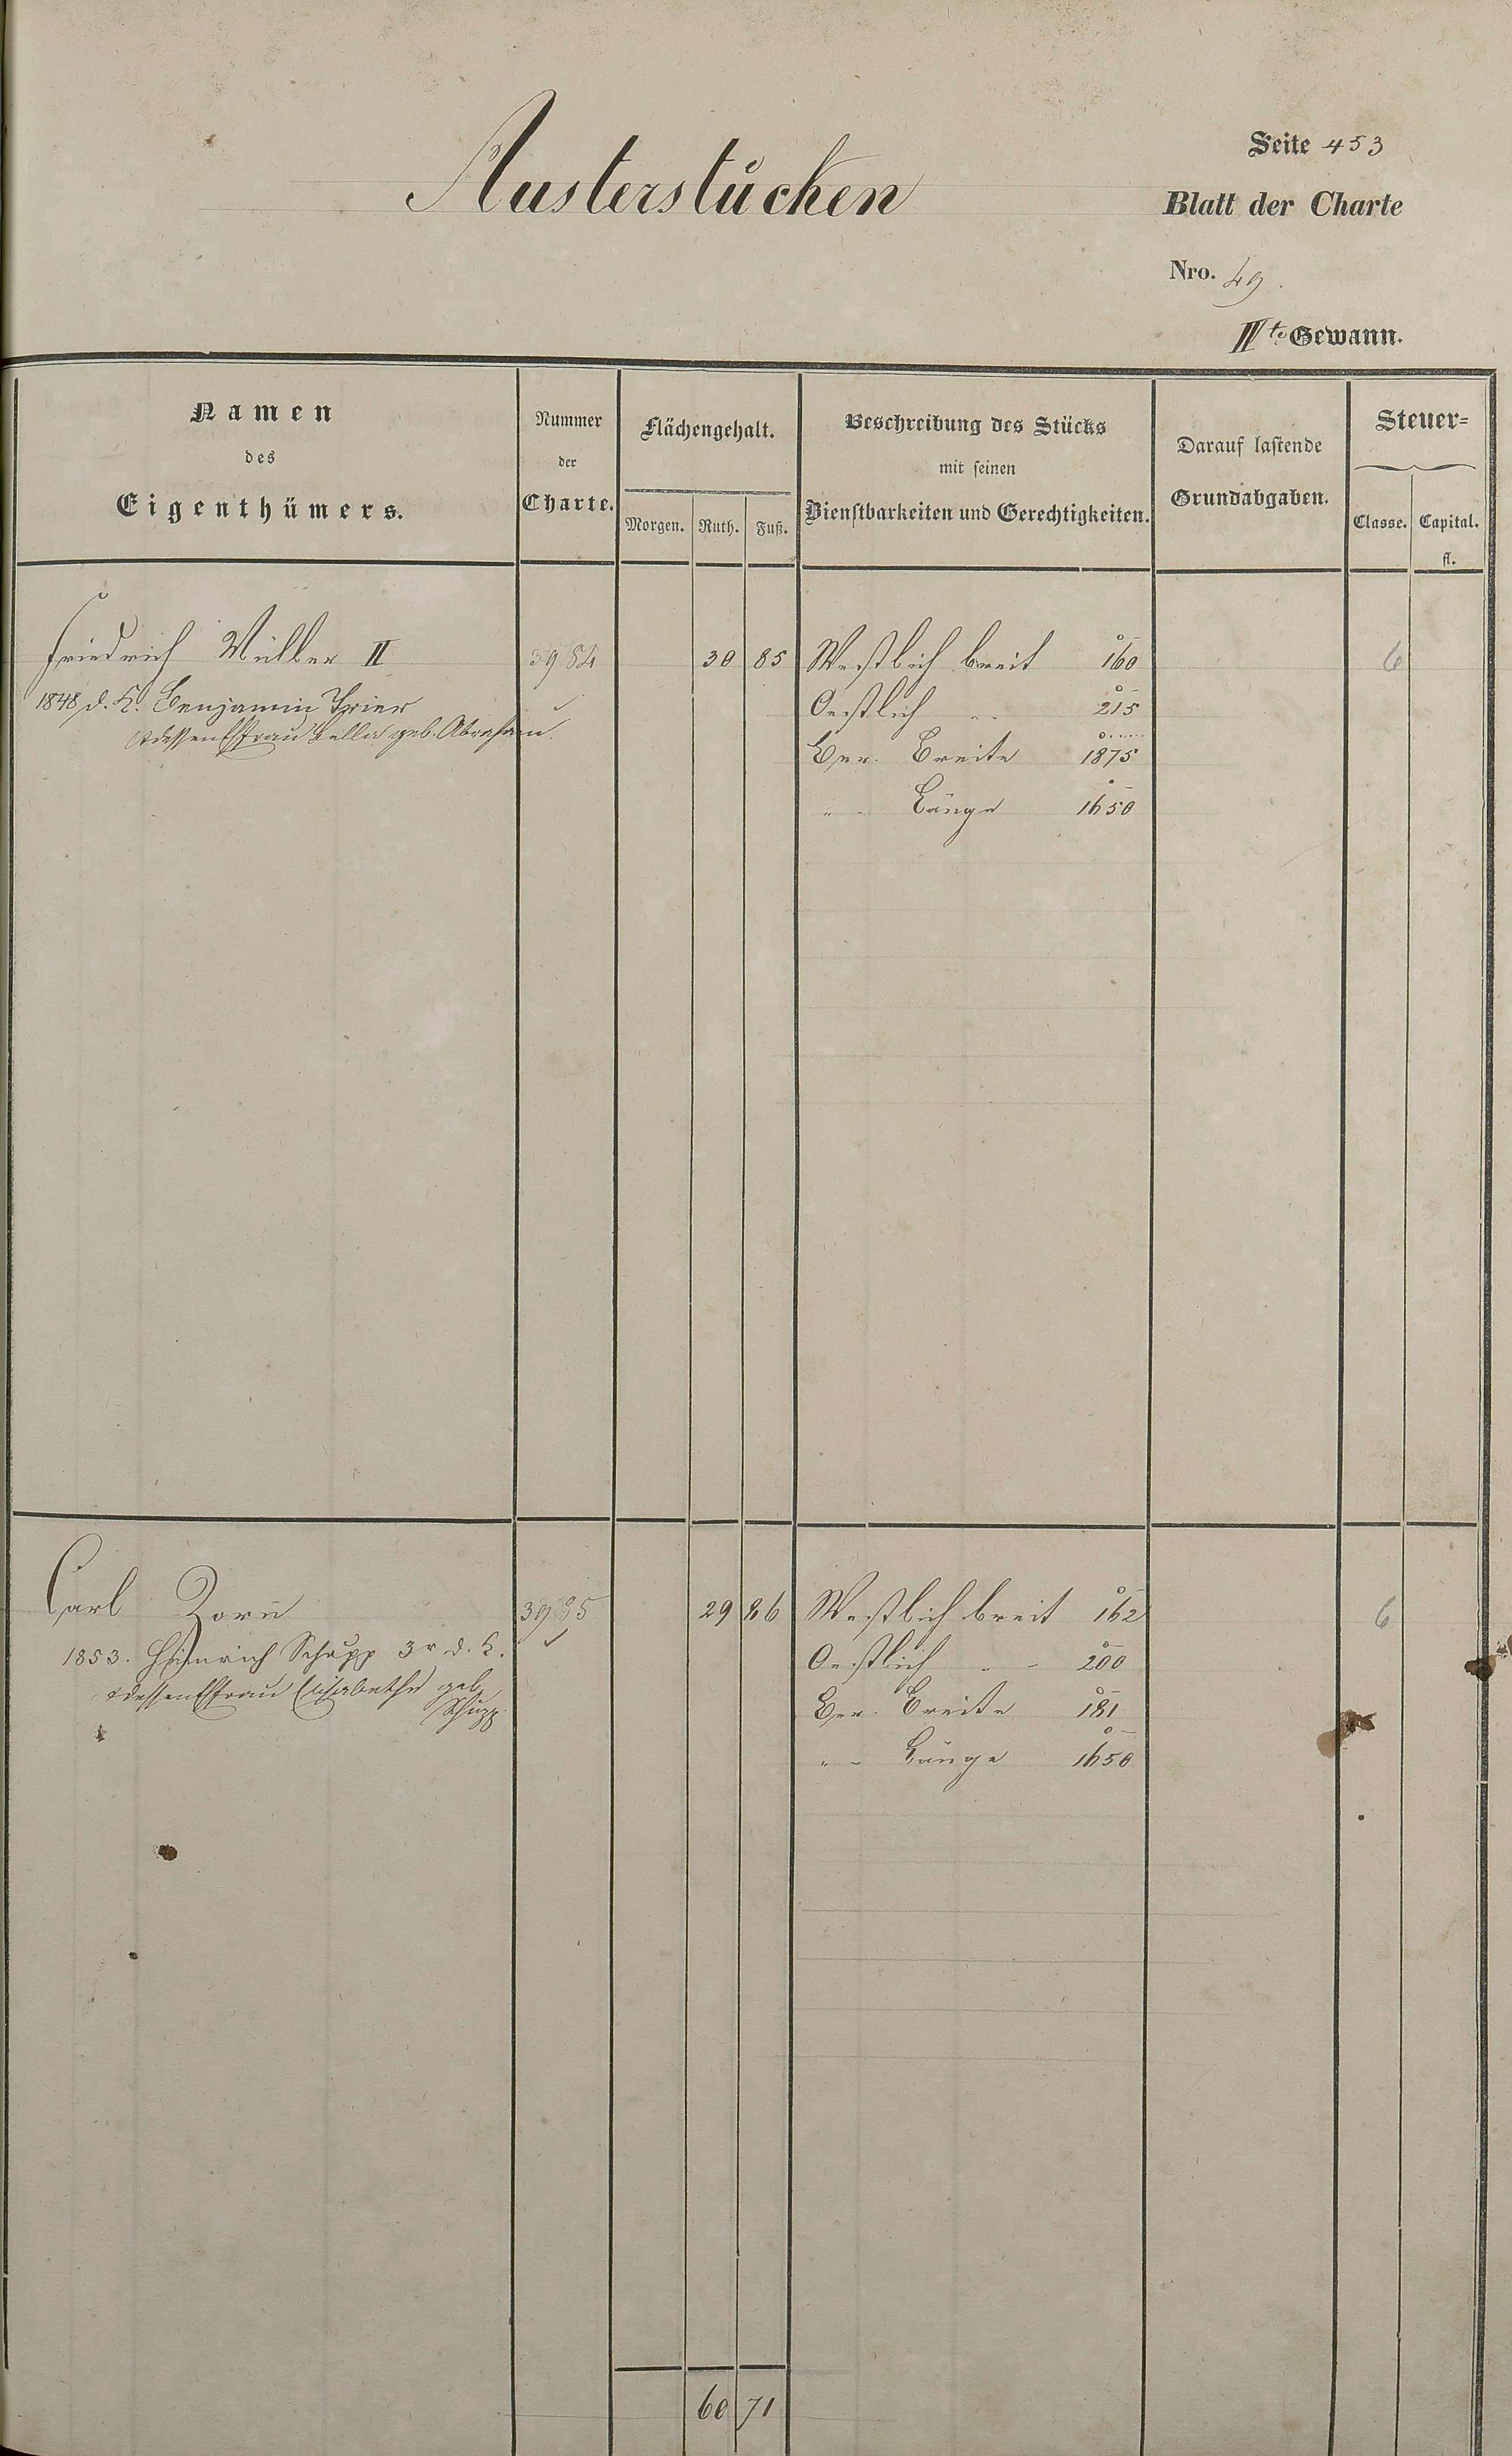 Austerstücken
Seite 453
Blatt der Charte
Nro. 49.
IIte Gewann.
Namen
des
Eigenthümers.
Nummer
der
Charte.
Flächengehalt.
Morgen. Ruth. Fuß.
Beschreibung des Stücks
mit seinen
Dienstbarkeiten und Gerechtigkeiten.
Darauf lastende
Grundabgaben.
Steuer=
Classe. Capital.
fl.
Friedrich Müller II 3984 30 85 Westlich breit 160 6
1848 d. K. Benjamin Trier Oestlich " " 215
& dessen Efrau Bella geb. Abraham.
Ber. Breite 1875
" - Länge 1650
Carl Zorn 3985 29 86 Westlich breit 162 6
1853. Heinrich Schupp 3r d. K. Oestlich " - 200
& dessen Efrau Elisabetha geb. Schupp
Ber. Breite 181
" - Länge 1650
60 71